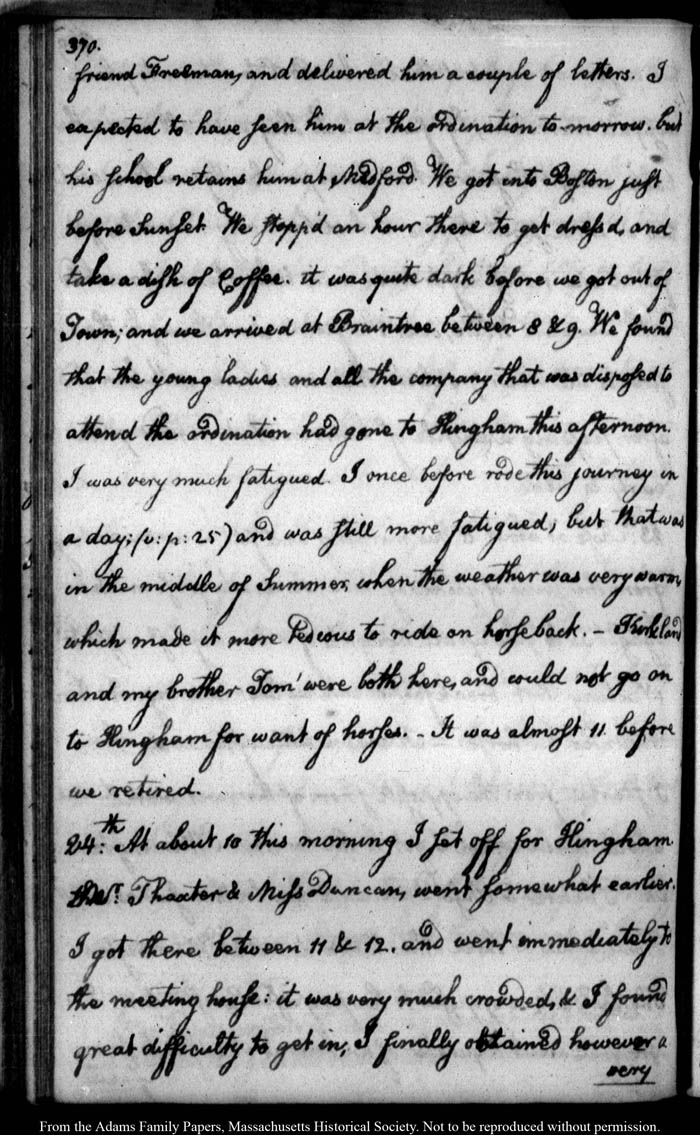 370.
friend Freeman, and delivered him a couple of letters. I
expected to have seen him at the ordination to-morrow. but
his school retains him at Medford. We got into Boston just
before Sunset. We stopp'd an hour there to get dress'd, and
take a dish of Coffee. it was quite dark before we got out of
Town; and we arrived at Braintree between 8 & 9. We found
that the young ladies and all the company that was disposed to
attend the ordination had gone to Hingham this afternoon.
I was very much fatigued. I once before rode this journey in
a day; (v: p: 25) and was still more fatigued, but that was
in the middle of Summer, when the weather was very warm,
which made it more tedious to ride on horseback. - Kirkland
and my brother Tom' were both here, and could not go on
to Hingham for want of horses. - It was almost 11 before
we retired.
24:th At about 10 this morning I set off for Hingham
Mr. Thaxter & Miss Duncan, went somewhat earlier.
I got there between 11 & 12. and went immediately to
the meeting house: it was very much crowded, & I found
great difficulty to get in, I finally obtained however a
very
From the Adams Family Papers, Massachusetts Historical Society. Not to be reproduced without permission.